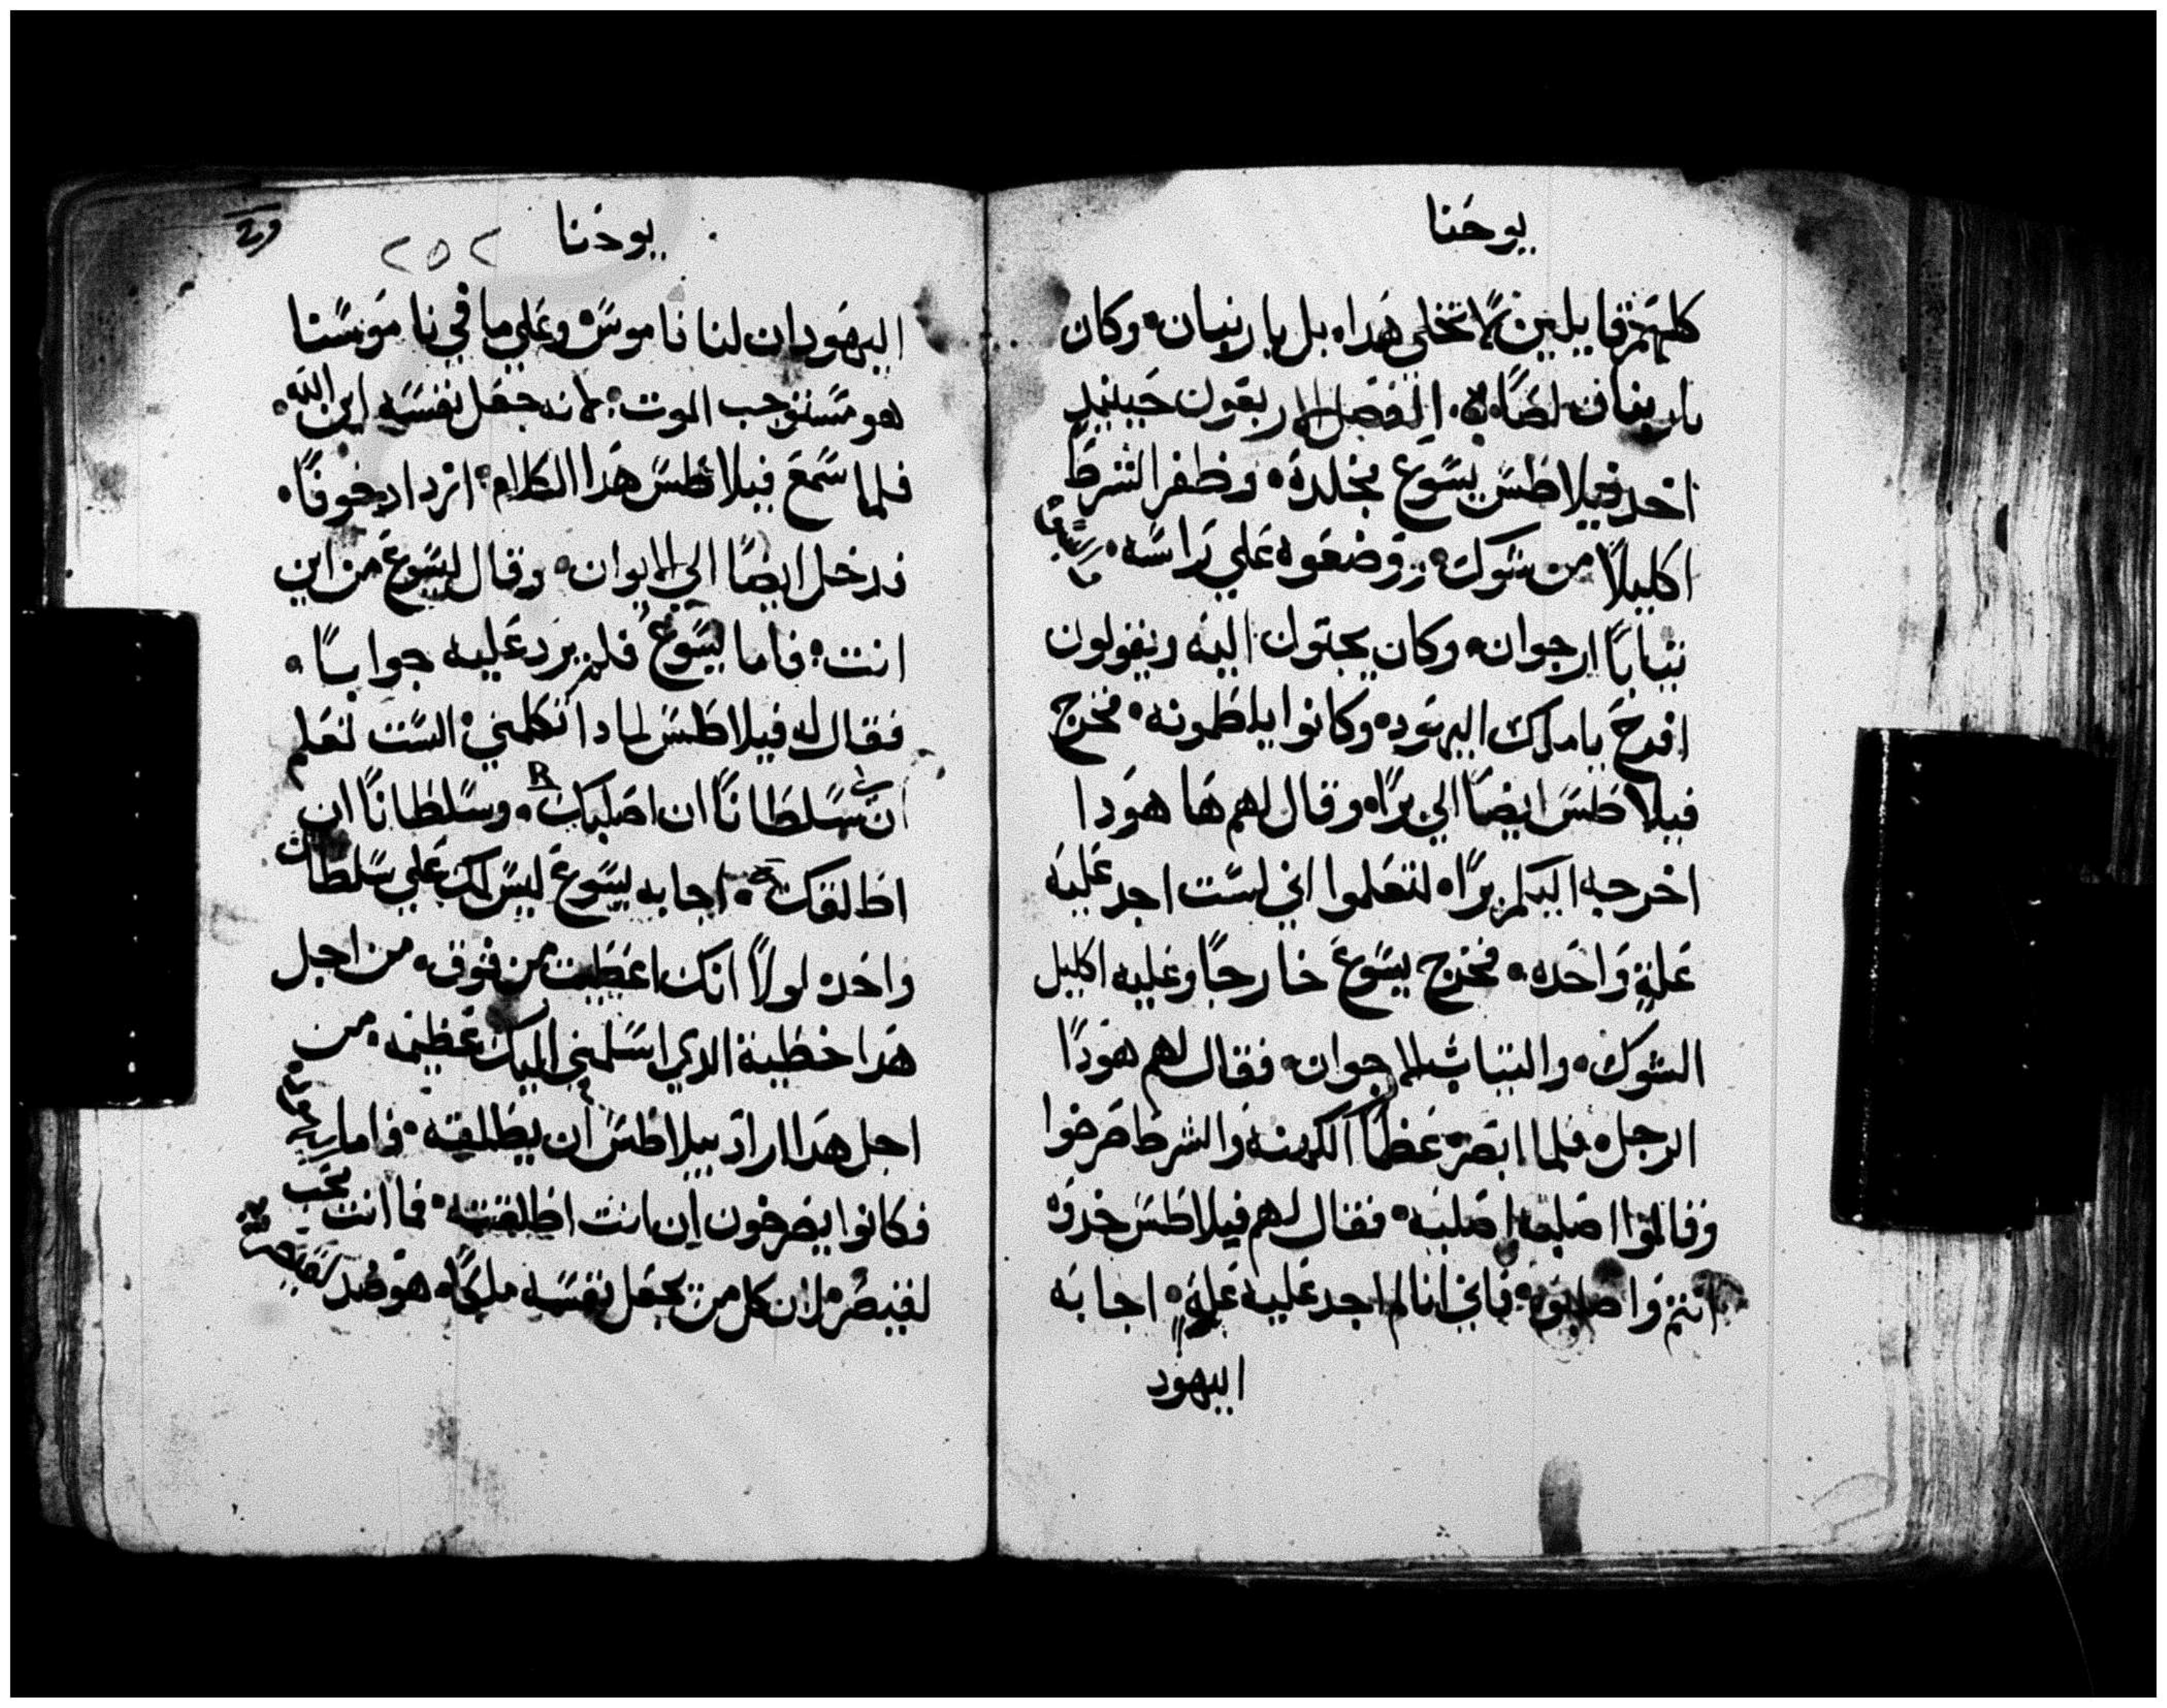 يوحنا
كلهم قايلين لا تخلي هدا بل باربنان وكان
باربنان لصا الفصل الاربعون حينيد
اخد فيلاطس يسوع مجلده وظفر الشرط
اكليلا من شوك ووضعوه علي راسه
ثيابا ارجوان وكان يجتون اليه ويقولون
افرح يا ملك اليهود وكانوا يلطمونه فخرج
فيلاطس ايضا الي برا وقال لهم ها هودا
اخرجه اليكم برا لتعلموا اني لست اجد عليه
علة واحده فخرج يسوع خارجا وعليه اكليل
الشوك والثياب الارجوان فقال لهم هودا
الرجل فلما ابصره عظما الكهنه والشرط صرخوا
وقالوا اصلبه اصلبه فقال لهم فيلاطس خدوه
انتم واصلبوه فاني انا لم اجد عليه علة اجابه
اليهود
يوحنا ٢٥٢
اليهود ان لنا ناموس وعلي ما في ناموسنا
هو مستوجب الموت لانه جعل نفسه ابن الله
فلما سمع فيلاطس هدا الكلام ازداد خوفا
فدخل ايضا الي الايوان وقال ليسوع من اين
انت فاما يسوع فلم يرد عليه جوابا
فقال له فيلاطس لمادا تكلمني الست تعلم
ان لي سلطانا ان اصلبك وسلطانا ان
اطلقك اجابه يسوع ليس لك علي سلطان
واحد لولا انك اعطيت من فوق من اجل
هدا خطية الدي اسلمني اليك عظيمه من
اجل هدا اراد بيلاطس ان يطلقه فاما
فكانوا يصرخون ان انت اطلقته فما انت تحب
لقيصر لان كل من يجعل نفسه ملكا هو ضد لقيصر